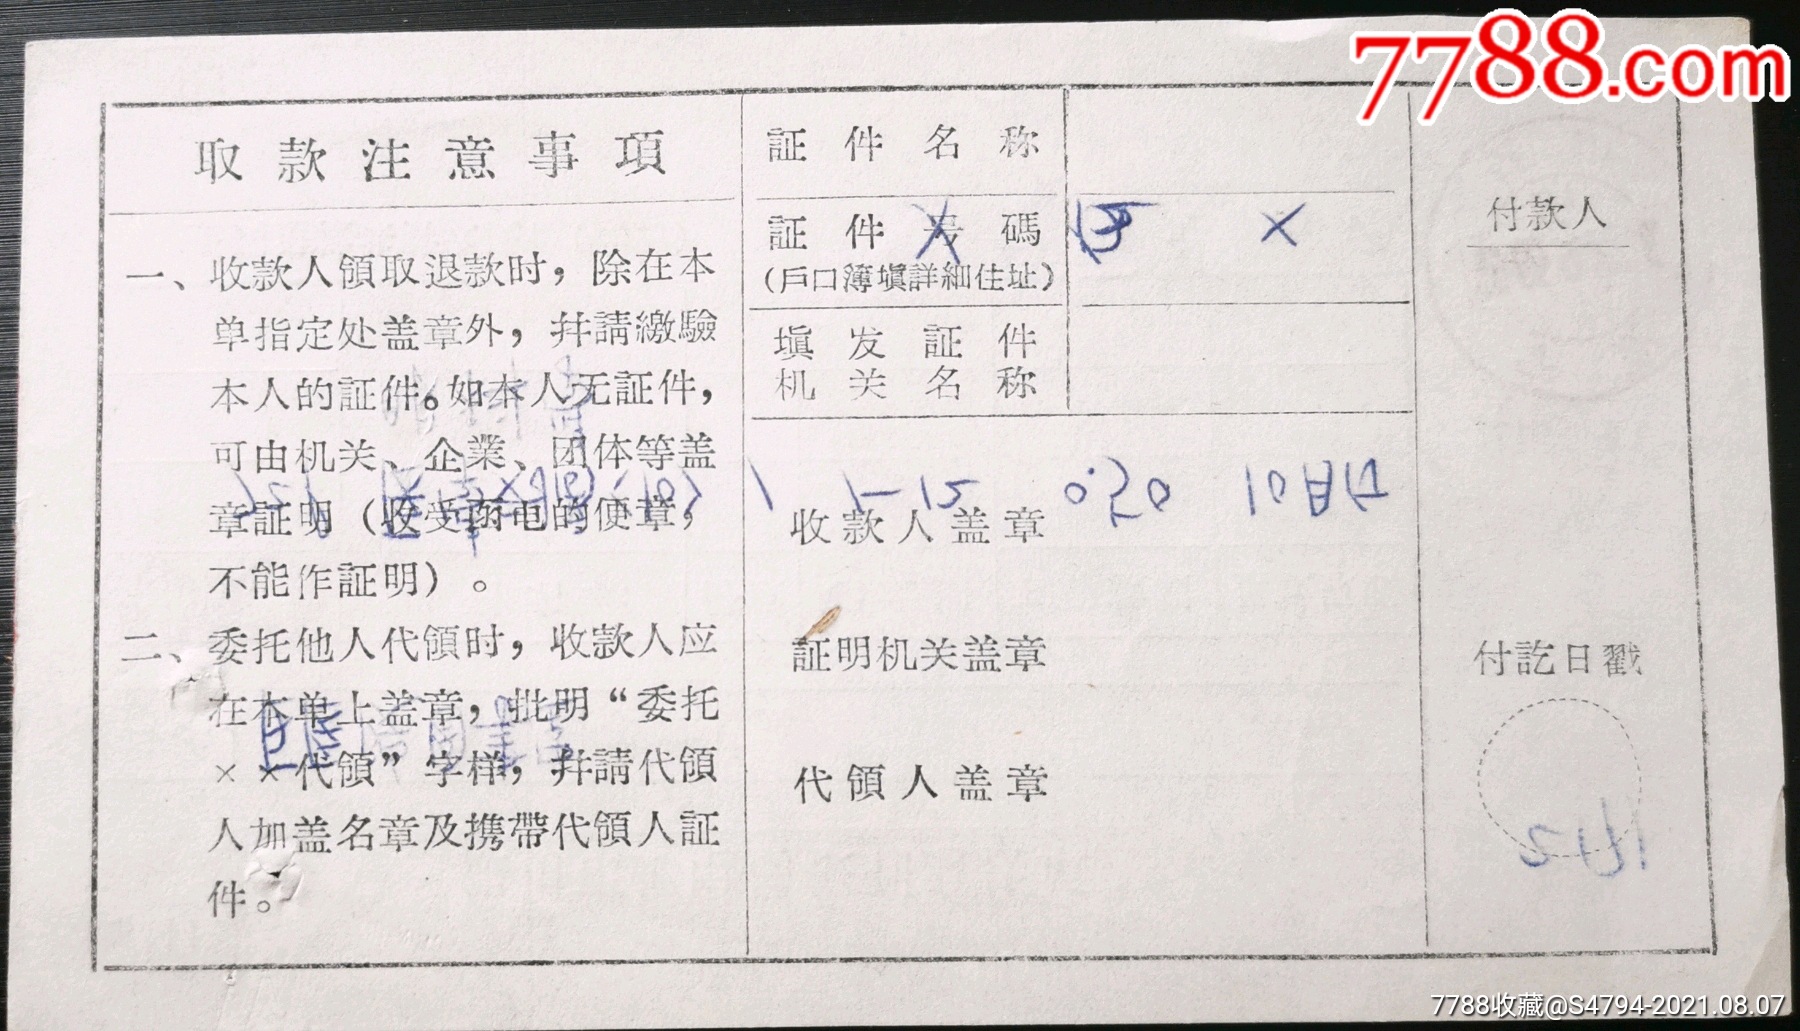 7788.com
取款注意事項
一、收款人領取退款时，除在本
单指定处盖章外，幷請繳驗
本人的証件。如本人无証件，
可由机关、企業、团体等盖
章証明（收受函电的便章，
不能作証明）。
二、委托他人代領时，收款人应
在本单上盖章，批明“委托
××代領”字样，幷請代領
人加盖名章及携帶代領人証
件。
証件名称
証件号碼
（戶口簿塡詳細住址）
塡发証件
机关名称
收款人盖章
証明机关盖章
代領人盖章
付款人
付訖日戳
7788收藏@S4794-2021.08.07